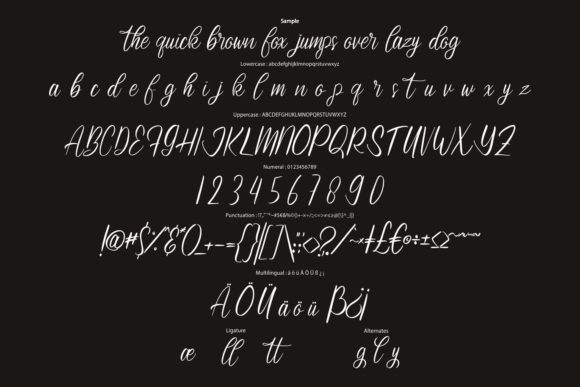 Sample
the quick brown fox jumps over lazy dog
Lowercase : abcdefghijklmnopqrstuvwxyz
a b c d e f g h i j k l m n o p q r s t u v w x y z
Uppercase : ABCDEFGHIJKLMNOPQRSTUVWXYZ
ABCDEFGHIJKLMNOPQRSTUVWXYZ
Numeral : 0123456789
1234567890
Punctuation :
!@#$%^&()_+-={}|[]\:;"'<>?,./~
Multilingual : ä ö ü Ä Ö Ü ß ¿ ¡
ÄÖÜäöüß¿¡
Ligature Alternates
æ ll tt g l y